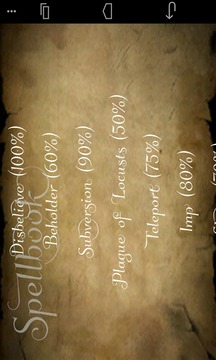 Spellbook
Disbelieve (100%)
Beholder (60%)
Subversion (90%)
Plague of Locusts (50%)
Teleport (75%)
Imp (80%)